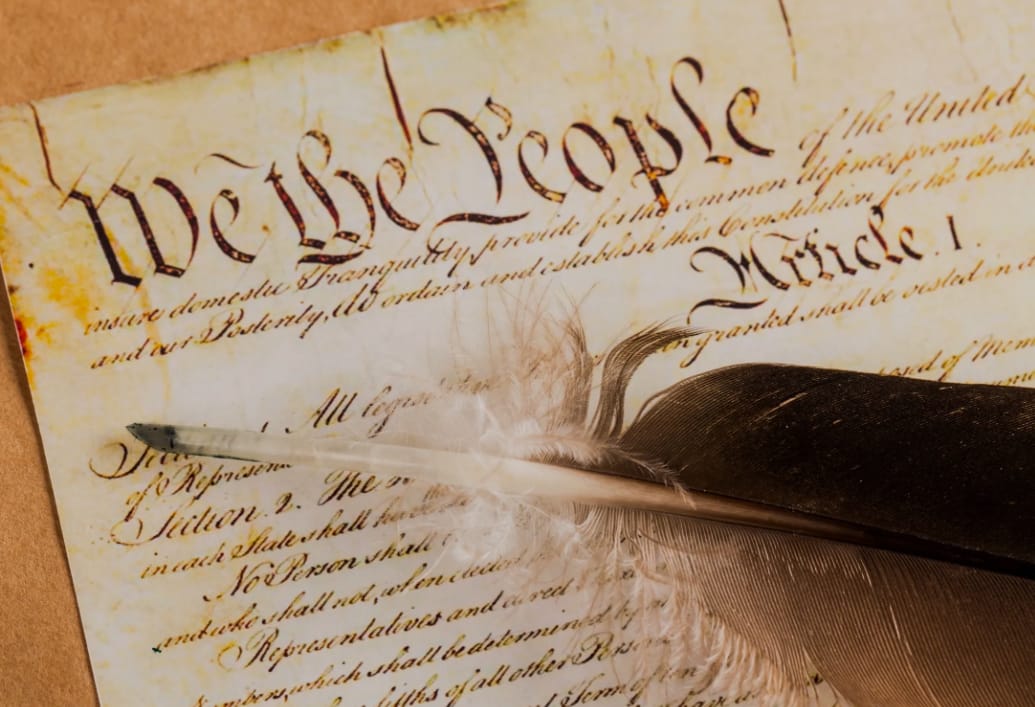 We the People of the United
insure domestic Tranquility, provide for the common defence, promote the
and our Posterity, do ordain and establish this Constitution for the United
Article. I.
granted shall be vested in a
Section. 1. All legis
of Represen
Section. 2. The
in each State shall have
No Person shall
and who shall not, when elected
Representatives and direct
Numbers, which shall be determined by
fifths of all other Persons
Term of ten